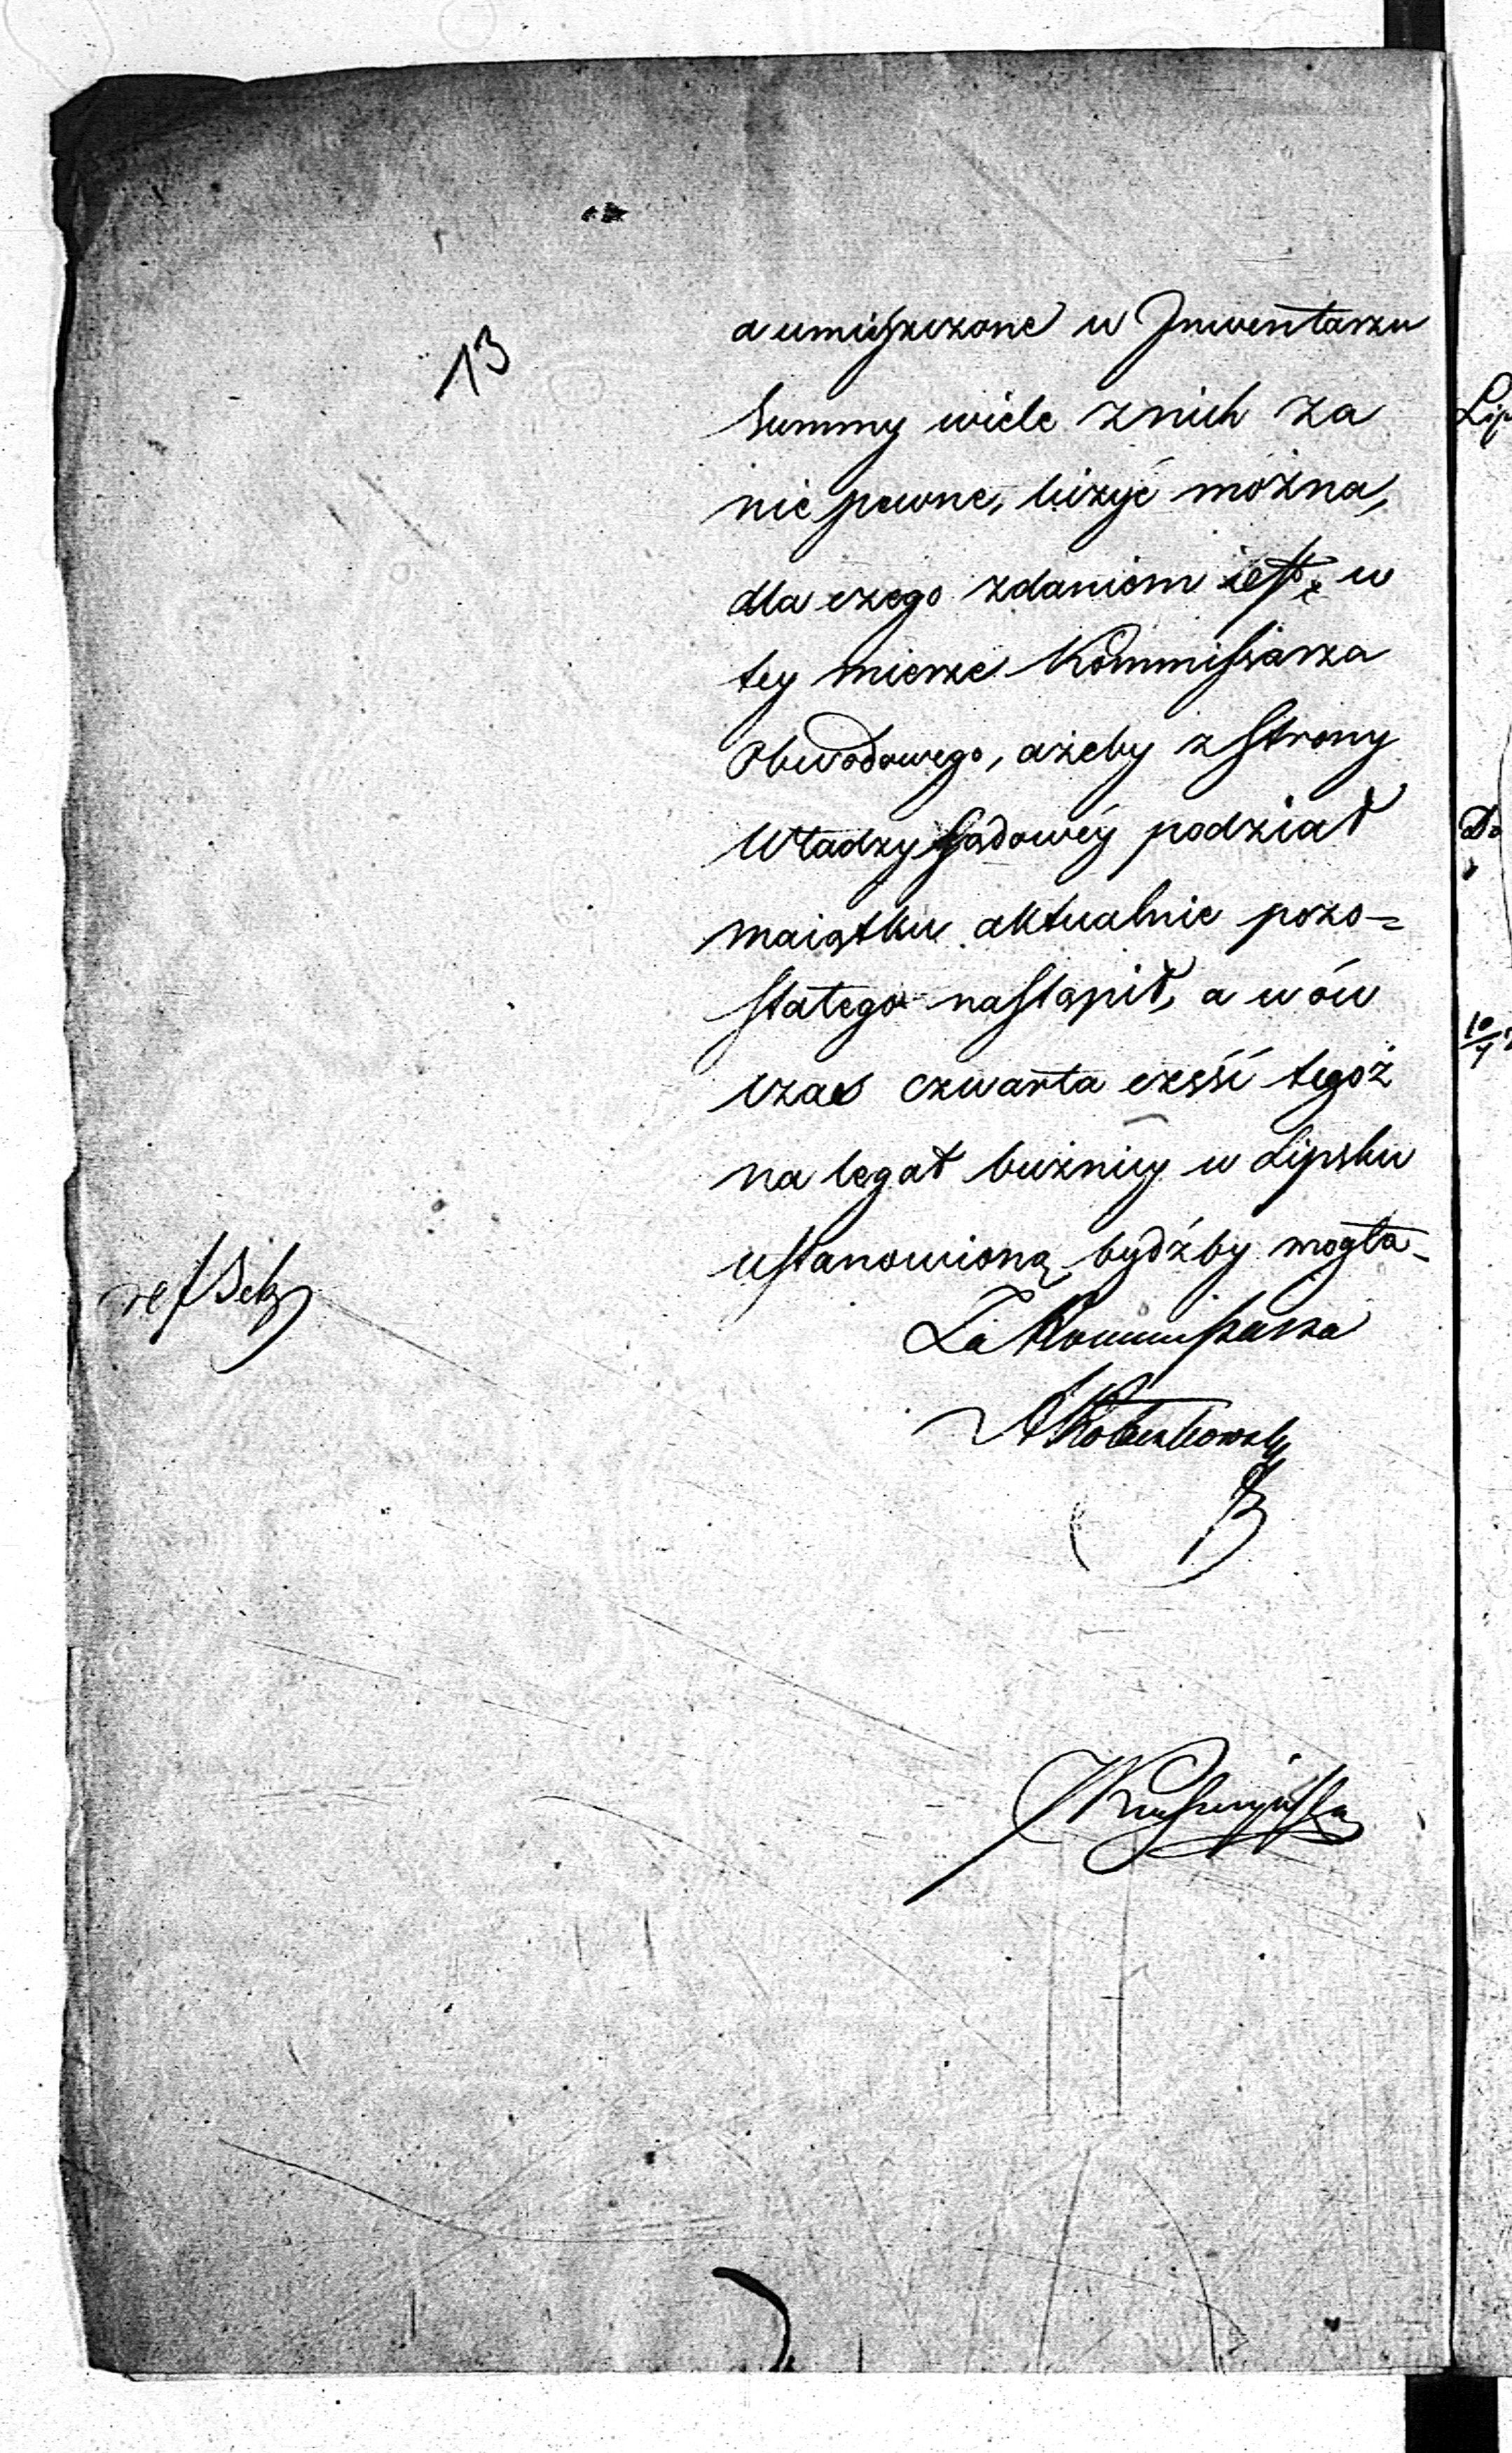 13
a umieszczone w Inwentarzu
Summy wiele znich za
nie pewne, liczyć można,
dla czego zdaniem iest, w
tey mierze Kommissarza
Obwodowego, ażeby z strony
Władzy Sądowéy podział
maiątku aktualnie pozo=
stałego nastąpił, a wów
czas czwarta część tegoż
na legat bużnicy w Lipsku
ustanowioną bydźby mogła_
Za Kommissarza